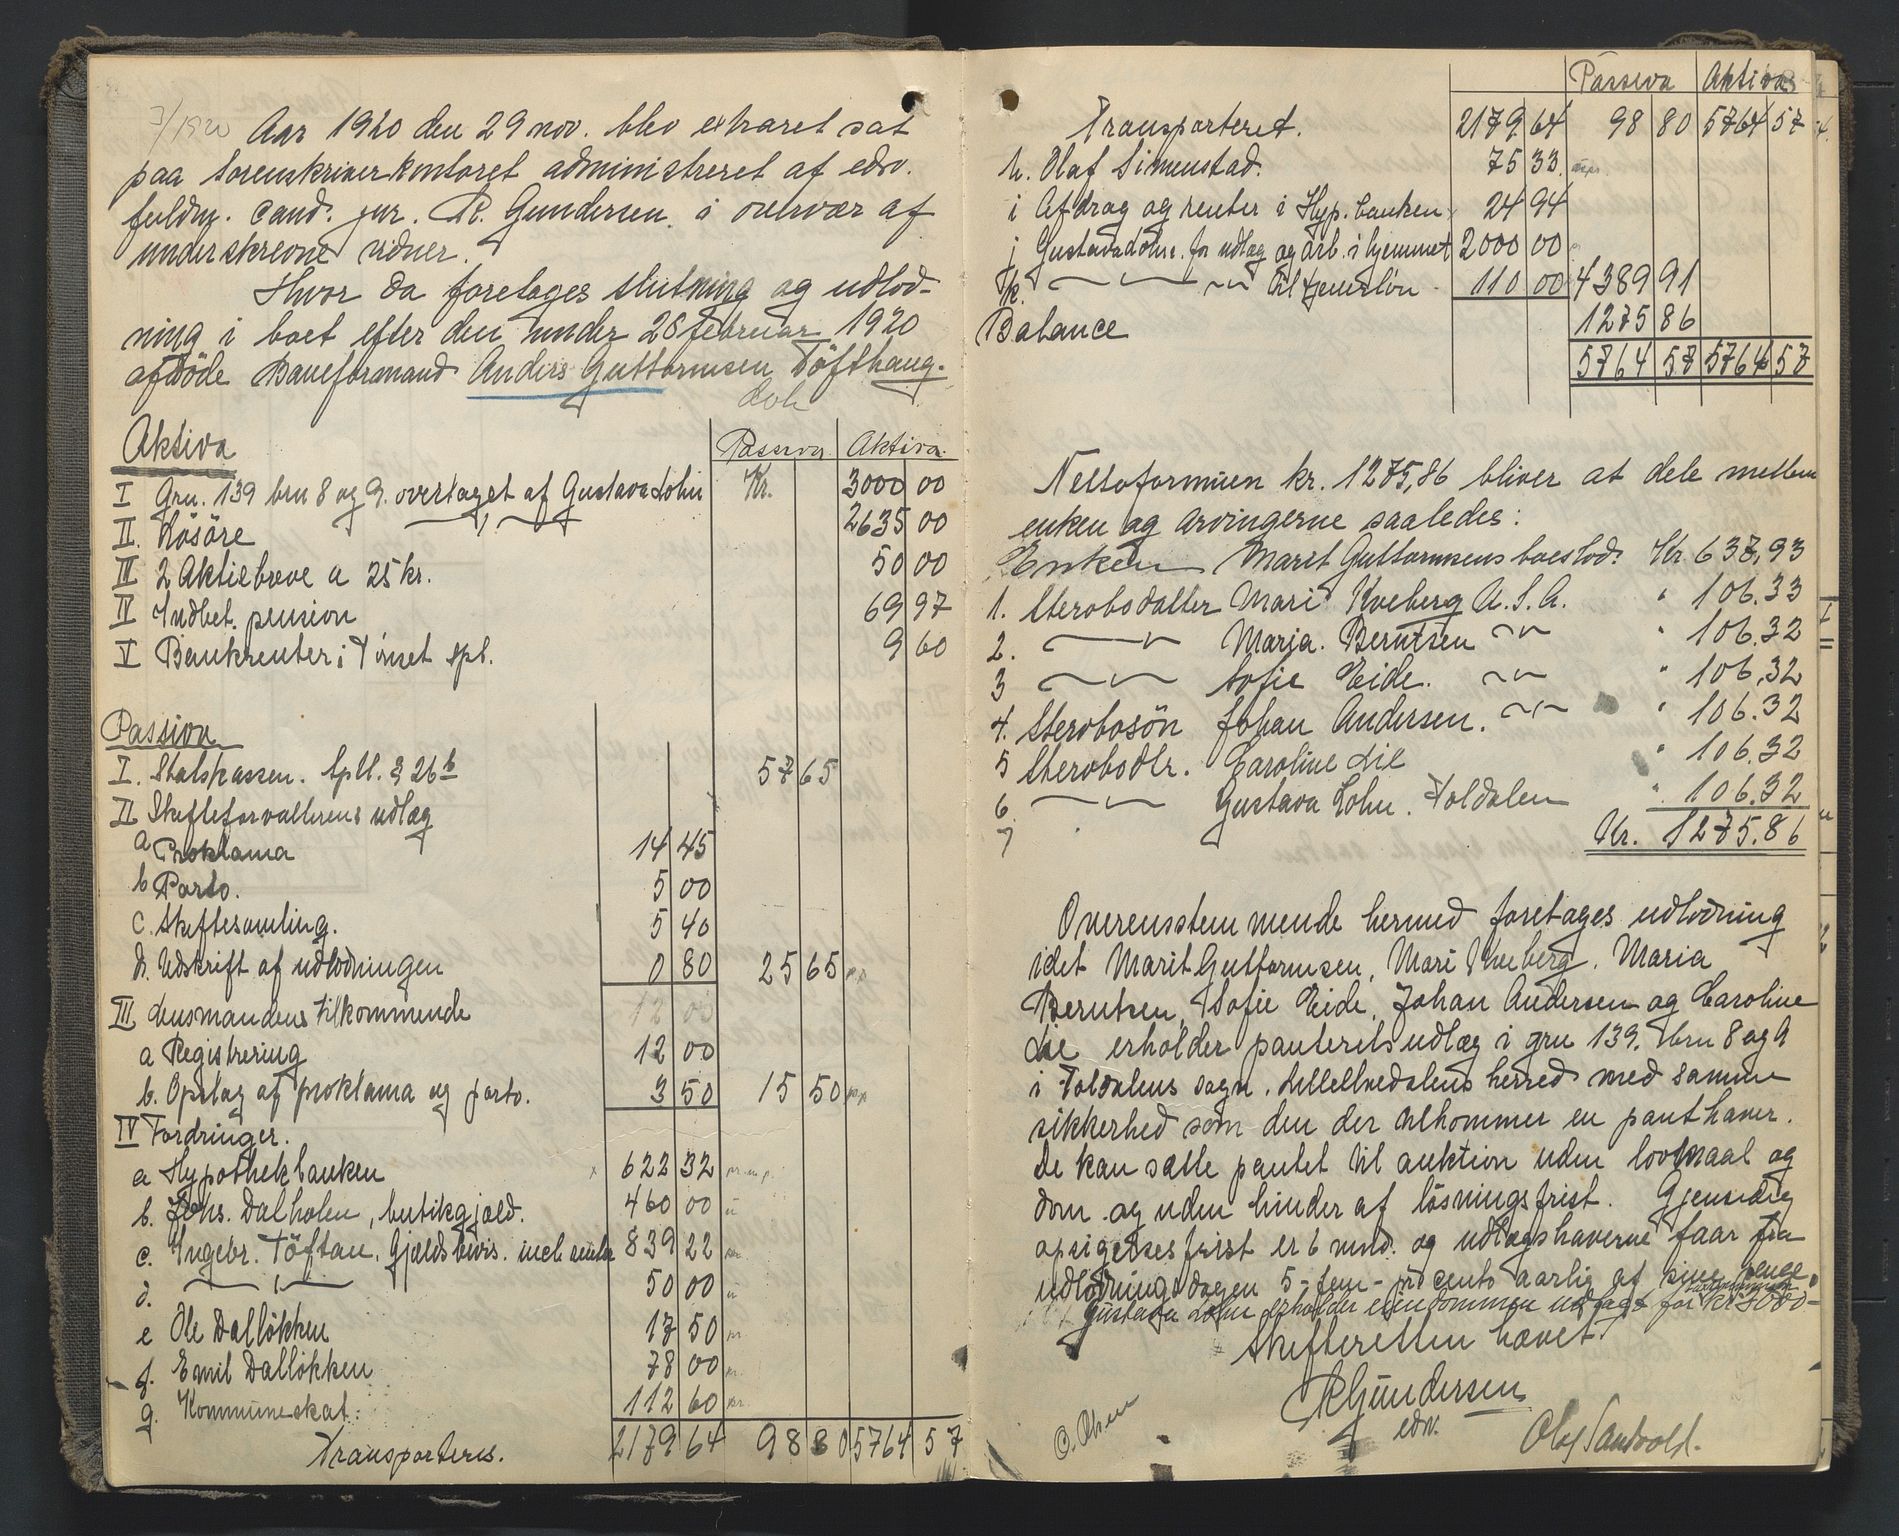 7/1920 Aar 1920 den 29 nov. blev extraret sat
paa sorenskriverkontoret administreret af edsv.
fuldm. cand. jur. R. Gundersen i overvær af
underskrevne vidner.
Hvor da foretages slutning og udlod-
ning i boet efter den under 28 februar 1920
afdöde Baneformand Anders Guttormsen Töfthaug.
Aktiva
Passiva Aktiva
I Gru. 139 bru 8 og 9. overtaget af Gustava Lohn Kr. 3000 00
II. Lösöre 2635 00
III 2 Aktiebreve a 25 kr. 50 00
IV Indbet. pension 69 97
V Bankrenter i Tönset spb. 9 60
Passiva
I. Statskassen. Spll. § 26 b 57 65
II Skifteforvalterens udlæg
a Proklama 14 45
b Porto. 5 00
c. Skiftesamling. 5 40
d. Udskrift af udlodningen 0 80 25 65
III Lensmandens tilkommende 12 00
a Registrering 12 00
b. Opslag af proklama og porto. 3 50 15 50
IV Fordringer.
a Hypothekbanken 622 32
b. Johs. Dalholen, butikgjæld. 460 00
c. Ingebr. Töftan. Gjældsbevis. incl. renter 839 22
d. — " — 50 00
e Ole Dalløkken 17 50
f. Emil Dalløkken 78 00
g. Kommuneskat. 112 60
Transporteres. 2179 64 98 80 5764 57
Passiva Aktiva
Transporteret. 2179 64 98 80 5764 57
h. Olaf Simenstad. 75 33
i Afdrag og renter i Hyp. banken 24 94
j Gustava Lohn. for udlæg og arb. i hjemmet 2000 00
k. — " — " til tjenerløn 110 00 4389 91
Balance 1275 86
5764 57 5764 57
Nettoformuen kr. 1275,86 bliver at dele mellem
enken og arvingerne saaledes:
Enken Marit Guttormsens boeslod. Kr. 637,93
1. Sterbodatter Mari Kveberg U.S.A. " 106.33
2. — " — Marja. Berntsen — " — " 106.32
3 — " — Sofie Eide. — " — " 106,32
4. Sterbosön Johan Andersen. — " — " 106.32
5 Sterbodtr. Caroline Lie " 106.32
6. — " — Gustava Lohn. Foldalen " 106.32
7 Kr. 1275.86
Overensstemmende hermed foretages udlodning
idet Marit Guttormsen, Mari Kveberg. Maria
Berntsen, Sofie Eide, Johan Andersen og Caroline
Lie erholder panteretsudlæg i gru 139. bru 8 og 9
i Foldalens sogn. Lilleelvedalens herred med samme
sikkerhed som den der tilkommer en panthaver.
De kan sætte pantet til auktion uden lovmaal og
dom. og uden hinder af lösningsfrist. Gjensidig
opsigelsesfrist er 6 mnd. og udlægshaverne faar fra
udlodningsdagen 5 - fem - procento aarlig af sine penge.
Gustava Lohn erholder eiendommen udlagt for kr 3000 -
Skifteretten hævet.
R Gundersen
edsv.
O. Olsen
Olaf Sandvold.